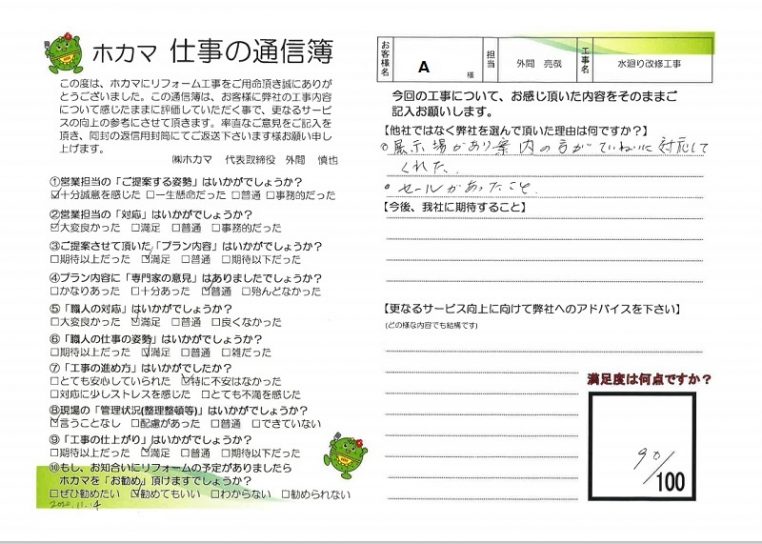 ホカマ 仕事の通信簿
この度は、ホカマにリフォーム工事をご用命頂き誠にありが
とうございました。この通信簿は、お客様に弊社の工事内容
について感じたままに評価していただく事で、更なるサービ
スの向上の参考にさせて頂きます。率直なご意見をご記入を
頂き、同封の返信用封筒にてご返送下さいます様お願い申し
上げます。
㈱ホカマ 代表取締役 外間 慎也
①営業担当の「ご提案する姿勢」はいかがでしょうか?
☑十分誠意を感じた □一生懸命だった □普通 □事務的だった
②営業担当の「対応」はいかがでしょうか?
☑大変良かった □満足 □普通 □事務的だった
③ご提案させて頂いた「プラン内容」はいかがでしょうか?
□期待以上だった ☑満足 □普通 □期待以下だった
④プラン内容に「専門家の意見」はありましたでしょうか?
□かなりあった □十分あった ☑普通 □殆んどなかった
⑤「職人の対応」はいかがでしょうか?
□大変良かった ☑満足 □普通 □良くなかった
⑥「職人の仕事の姿勢」はいかがでしょうか?
□期待以上だった ☑満足 □普通 □雑だった
⑦「工事の進め方」はいかがでしたか?
□とても安心していられた ☑特に不安はなかった
□対応に少しストレスを感じた □とても不満を感じた
⑧現場の「管理状況(整理整頓等)」はいかがでしょうか?
☑言うことなし □配慮があった □普通 □できていない
⑨「工事の仕上がり」はいかがでしょうか?
□期待以上だった ☑満足 □普通 □期待以下だった
⑩もし、お知合いにリフォームの予定がありましたら
ホカマを「お勧め」頂けますでしょうか?
□ぜひ勧めたい ☑勧めてもいい □わからない □勧められない
お客様名 A 様 担当 外間 亮哉 工事名 水廻り改修工事
今回の工事について、お感じ頂いた内容をそのままご
記入お願いします。
【他社ではなく弊社を選んで頂いた理由は何ですか?】
○展示場があり案内の方がていねいに対応して
くれた.
○セールがあったこと.
【今後、我社に期待すること】
【更なるサービス向上に向けて弊社へのアドバイスを下さい】
(どの様な内容でも結構です)
満足度は何点ですか?
90/100